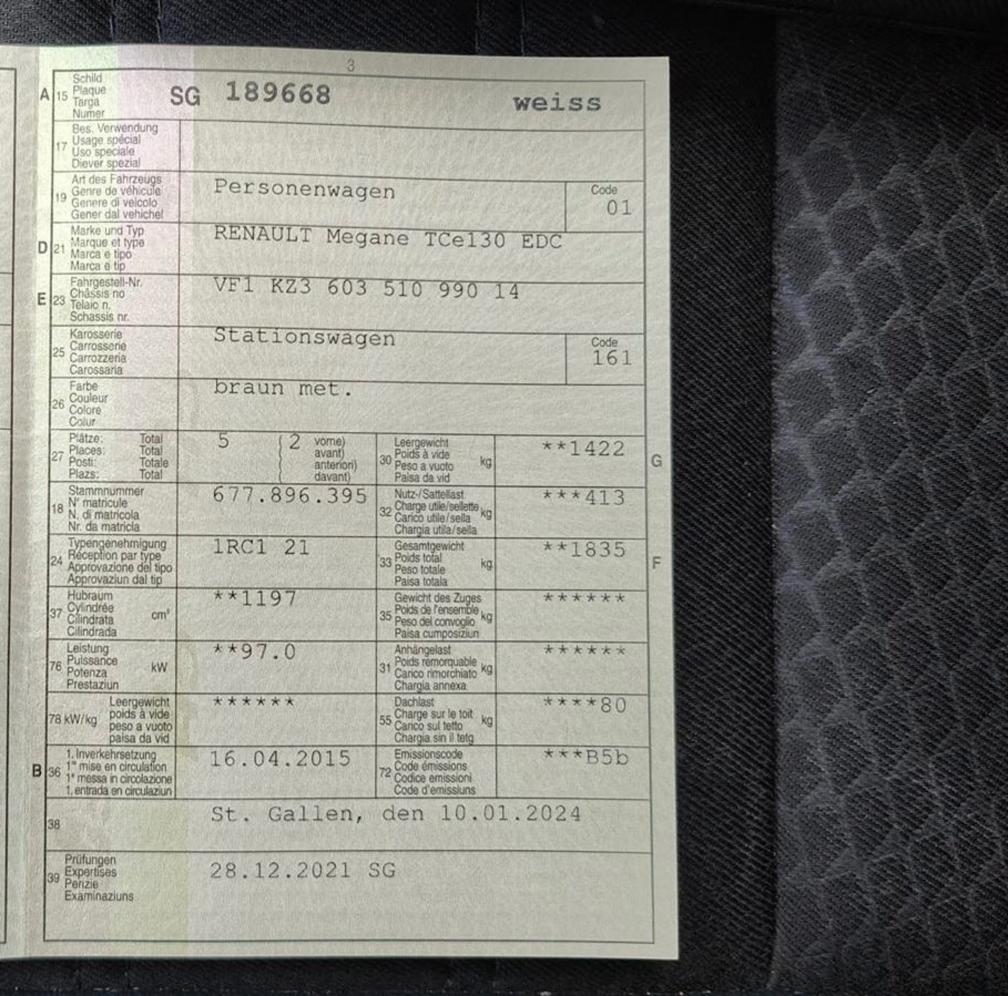 3
A 15 Schild Plaque Targa Numer SG 189668 weiss
17 Bes. Verwendung Usage spécial Uso speciale Diever spezial
19 Art des Fahrzeugs Genre de véhicule Genere di veicolo Gener dal vehichel Personenwagen Code 01
D 21 Marke und Typ Marque et type Marca e tipo Marca e tip RENAULT Megane TCe130 EDC
E 23 Fahrgestell-Nr. Châssis no Telaio n. Schassis nr. VF1 KZ3 603 510 990 14
25 Karosserie Carrosserie Carrozzeria Carossaria Stationswagen Code 161
26 Farbe Couleur Colore Colur braun met.
27 Plätze: Total Places: Total Posti: Totale Plazs: Total 5 (2 vorne) avant) anteriori) davant) 30 Leergewicht Poids à vide Peso a vuoto Paisa da vid kg **1422 G
18 Stammnummer N° matricule N. di matricola Nr. da matricla 677.896.395 32 Nutz-/Sattellast Charge utile/sellette Carico utile/sella Chargia utila/sella kg ***413
24 Typengenehmigung Réception par type Approvazione del tipo Approvaziun dal tip 1RC1 21 33 Gesamtgewicht Poids total Peso totale Paisa totala kg **1835 F
37 Hubraum Cylindrée Cilindrata Cilindrada cm³ **1197 35 Gewicht des Zuges Poids de l'ensemble Peso del convoglio Paisa cumposiziun kg ******
76 Leistung Puissance Potenza Prestaziun kW **97.0 31 Anhängelast Poids remorquable Carico rimorchiato Chargia annexa kg ******
78 kW/kg Leergewicht poids à vide peso a vuoto paisa da vid ****** 55 Dachlast Charge sur le toit Carico sul tetto Chargia sin il tetg kg ****80
B 36 1. Inverkehrsetzung 1re mise en circulation 1a messa in circolazione 1. entrada en circulaziun 16.04.2015 72 Emissionscode Code émissions Codice emissioni Code d'emissiuns ***B5b
38 St. Gallen, den 10.01.2024
39 Prüfungen Expertises Perizie Examinaziuns 28.12.2021 SG